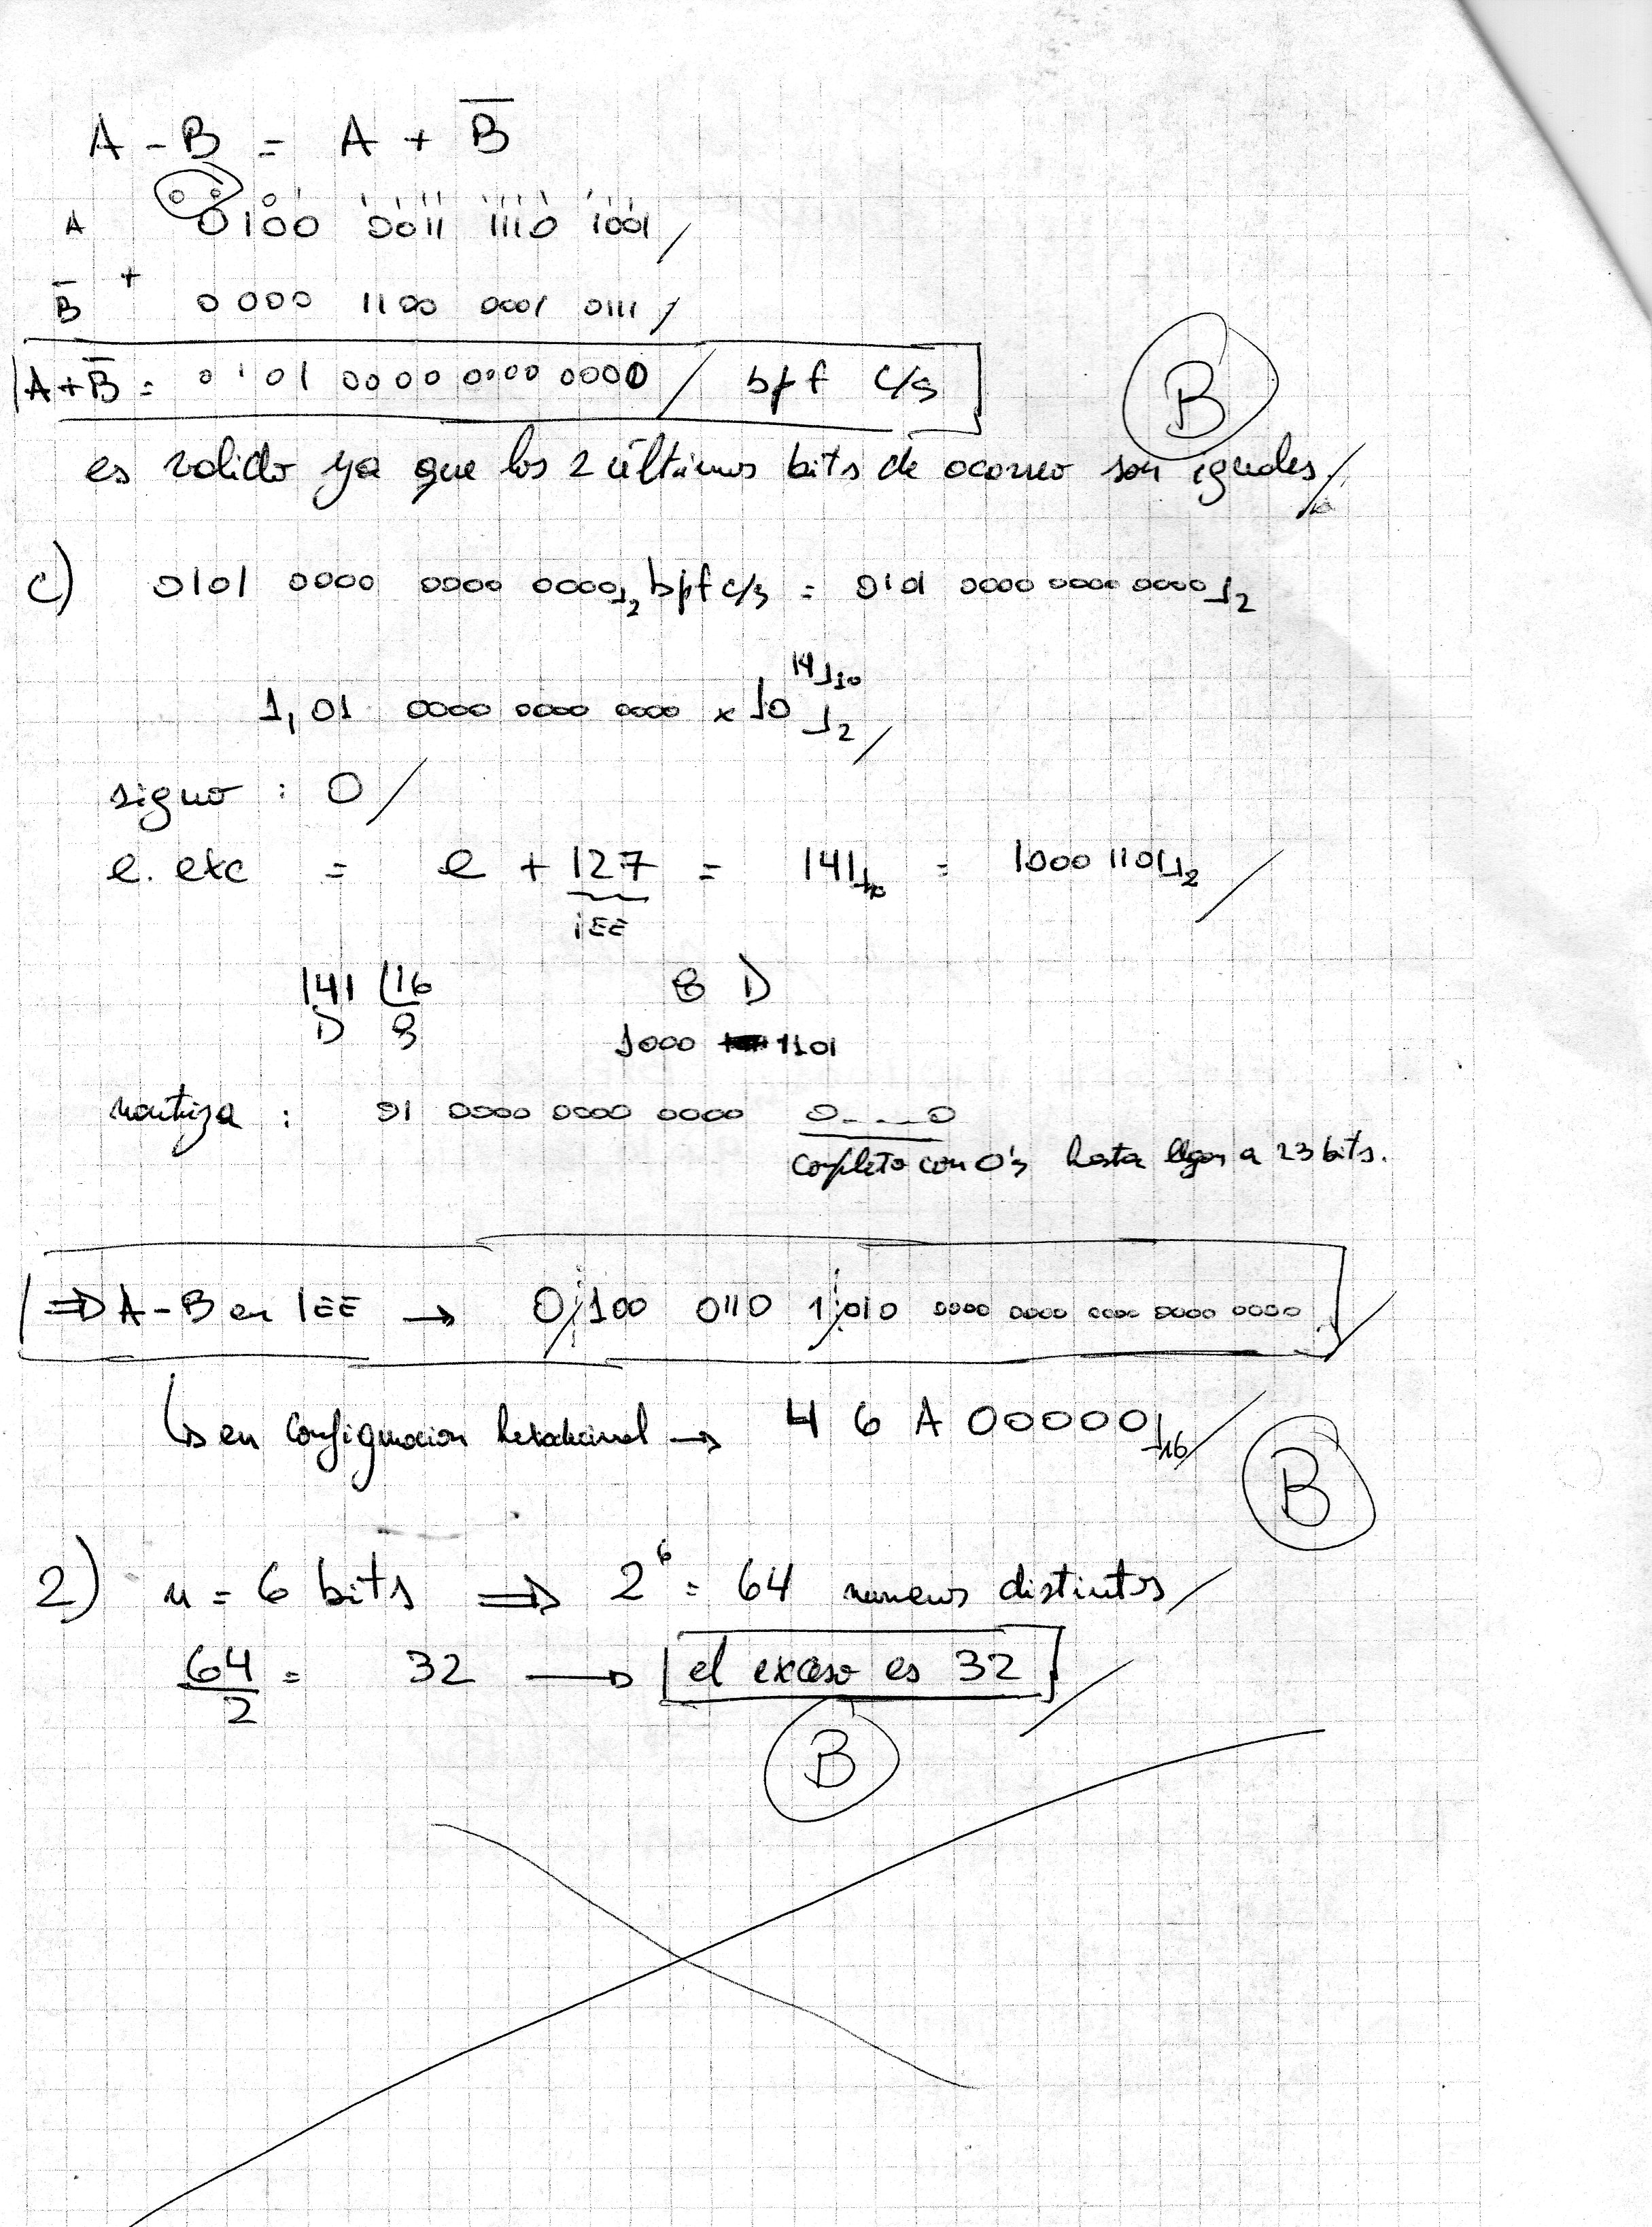 A - B = A + B̅
0 0 0 1 1 1 1 1 1 1 1 1 1 1
A 0100 0011 1110 1001
B̅ + 0000 1100 0001 0111
A+B̅ = 0101 0000 0000 0000 / bpf c/s
B
es valido ya que los 2 últimos bits de acarreo son iguales
c) 0101 0000 0000 0000⌋₂ bpf c/s = 0101 0000 0000 0000⌋₂
1,01 0000 0000 0000 x 10⌋₂ ^14⌋₁₀
signo : 0
e. exc = e + 127 = 141⌋₁₀ = 1000 1101⌋₂
iEE
141 | 16 8 D
D 8 1000 1101
mantiza : 01 0000 0000 0000 0...0
completo con 0's hasta llegar a 23 bits.
⇒ A-B en IEE → 0/100 0110 1/010 0000 0000 0000 0000 0000
↳ en configuracion hexadecimal → 4 6 A 00000⌋₁₆
B
2) n = 6 bits ⇒ 2⁶ = 64 numeros distintos
64/2 = 32 → el exceso es 32
B